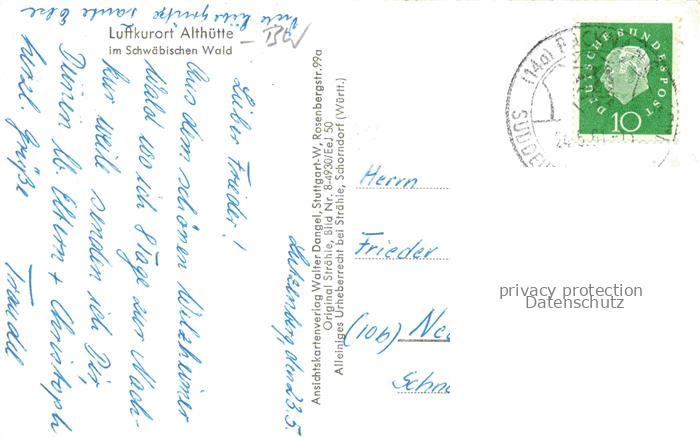 Luftkurort Althütte
im Schwäbischen Wald
Lutzenberg, den 23.5.
Lieber Frieder!
Aus dem schönen Welzheimer
Wald wo ich 8 Tage zur Nach-
kur weile senden ich Dir,
Deinen lb. Eltern + Christoph
herzl. Grüße
Traudel
Viele liebe Grüße
Ansichtskartenverlag Walter Dangel, Stuttgart-W, Rosenbergstr. 99a
Original Strähle, Bild Nr. 8-4930/EeJ 50
Alleiniges Urheberrecht bei Strähle, Schorndorf (Württ.)
Herrn
Frieder
(10b) Ne
Schn
DEUTSCHE BUNDESPOST
10
(14a) BACK
24.5.61
privacy protection
Datenschutz